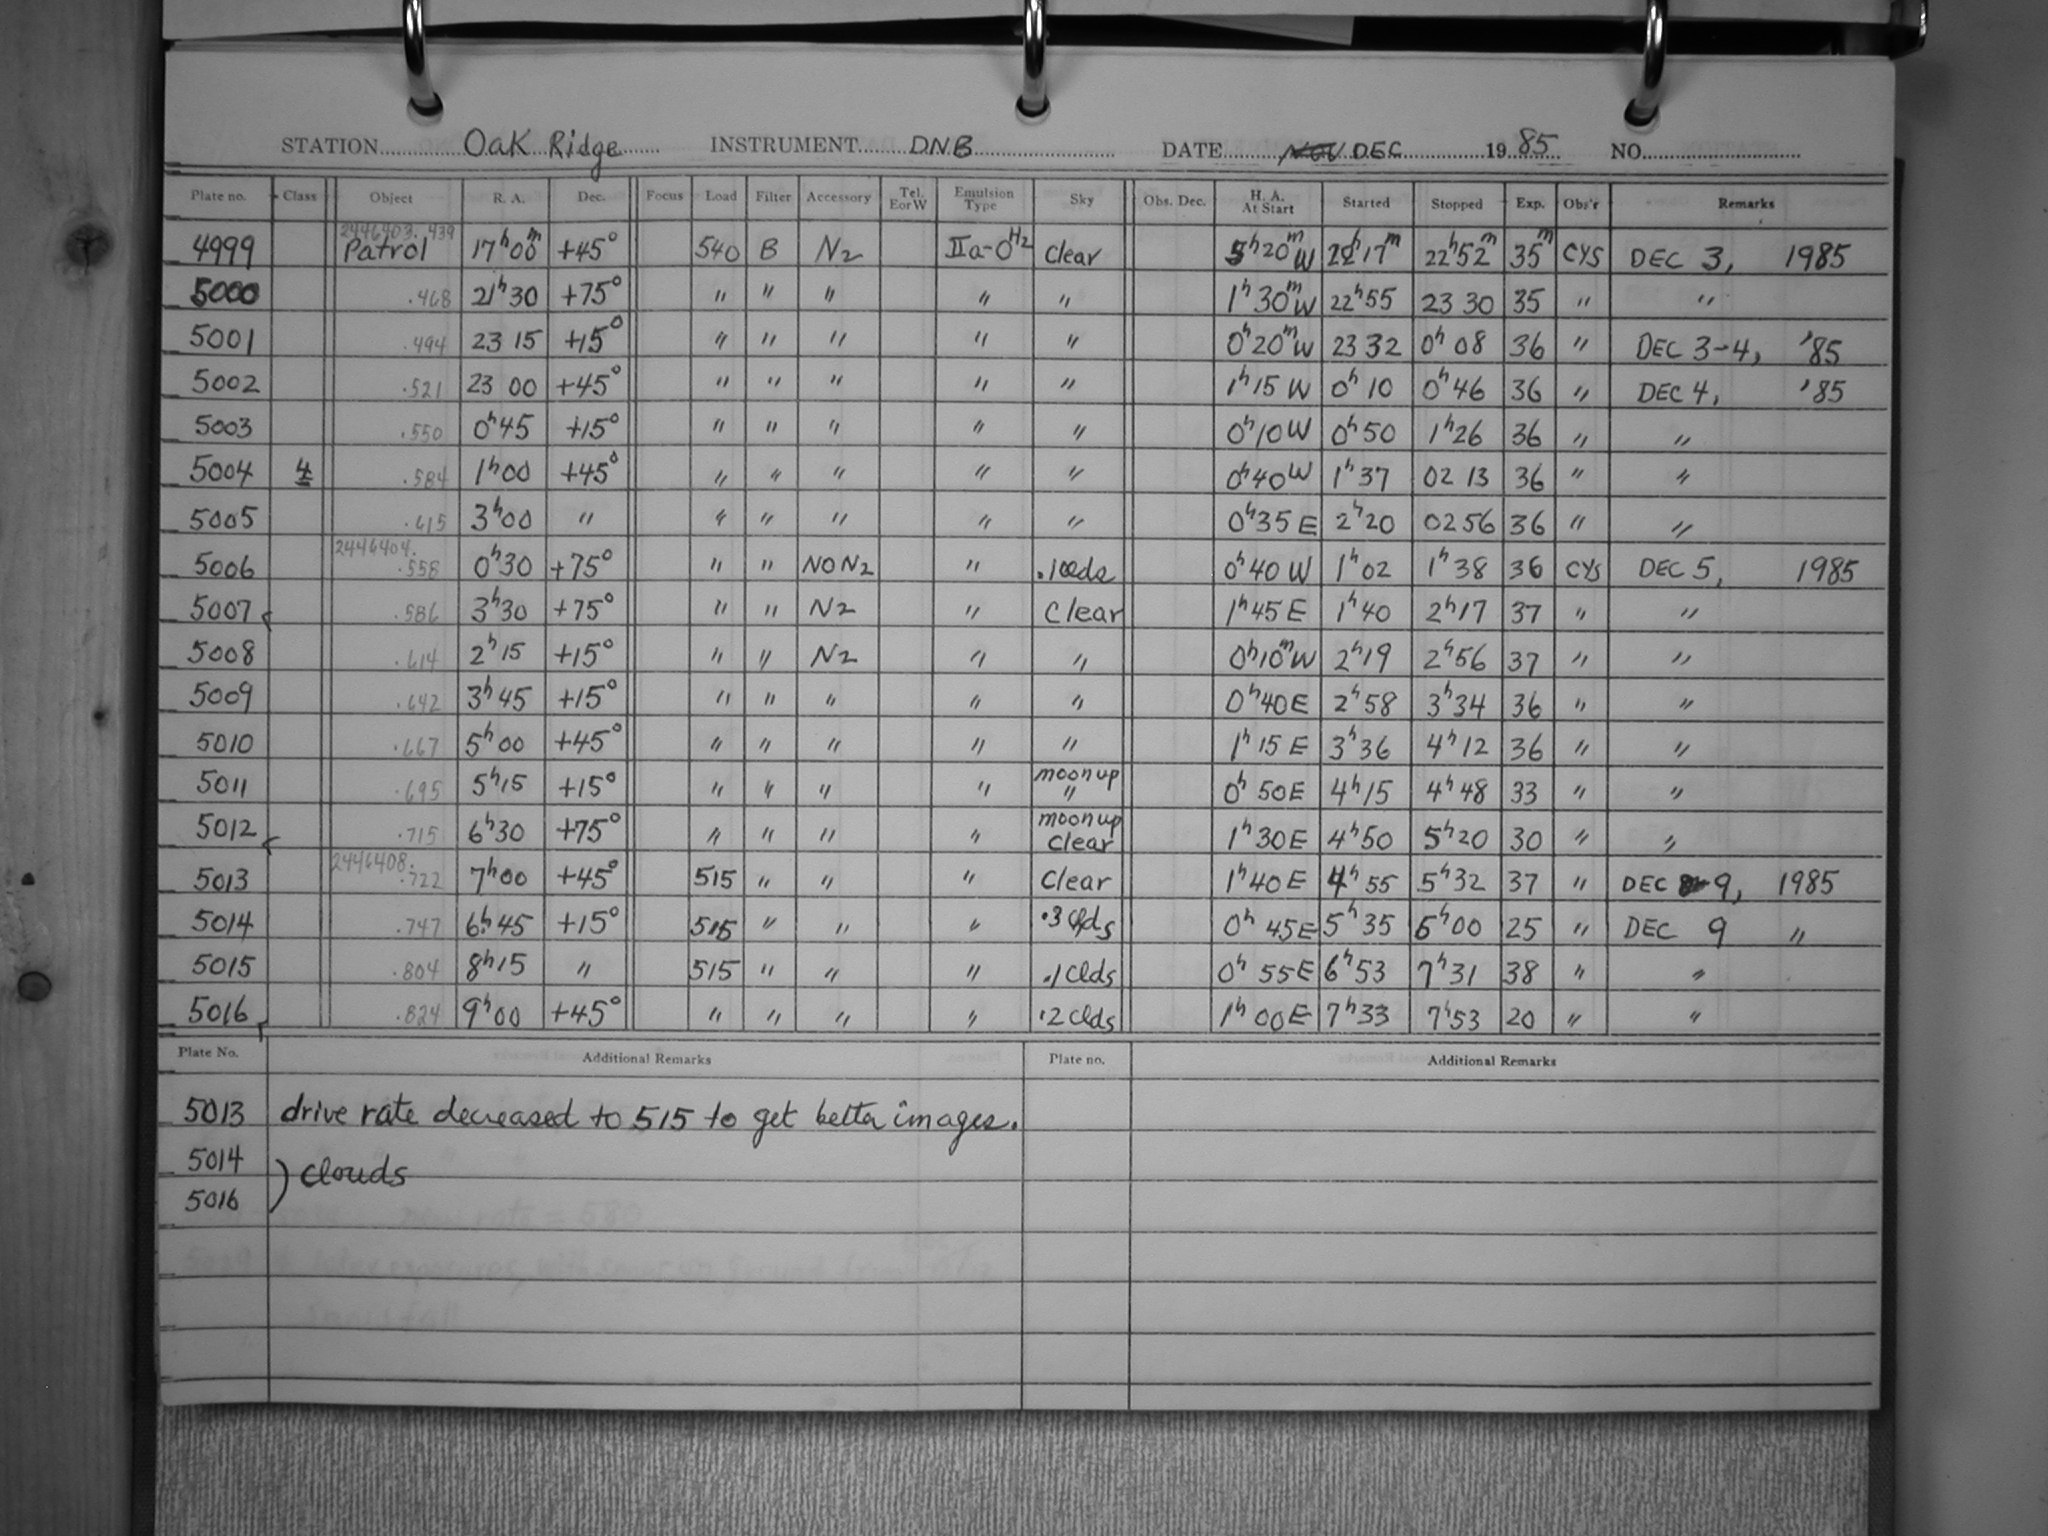 STATION Oak Ridge INSTRUMENT DNB DATE DEC 1985 NO.
Plate no. Class Object R. A. Dec. Focus Load Filter Accessory Tel. E or W Emulsion Type Sky Obs. Dec. H. A. At Start Started Stopped Exp. Obs'r Remarks
2446403.439
4999 Patrol 17h00m +45° 540 B N2 IIa-O H2 Clear 5h20m W 22h17m 22h52m 35m CYS DEC 3, 1985
5000 .468 21h30 +75° " " " " " 1h30m W 22h55 23 30 35 " "
5001 .494 23 15 +15° " " " " " 0h20m W 23 32 0h08 36 " DEC 3-4, '85
5002 .521 23 00 +45° " " " " " 1h15 W 0h10 0h46 36 " DEC 4, '85
5003 .550 0h45 +15° " " " " " 0h10 W 0h50 1h26 36 " "
5004 4 .584 1h00 +45° " " " " " 0h40 W 1h37 02 13 36 " "
5005 .615 3h00 " " " " " " 0h35 E 2h20 02 56 36 " "
2446404.
5006 .558 0h30 +75° " " NO N2 " 0h40 W 1h02 1h38 36 CYS DEC 5, 1985
5007 .586 3h30 +75° " " N2 " Clear 1h45 E 1h40 2h17 37 " "
5008 .614 2h15 +15° " " N2 " " 0h10m W 2h19 2h56 37 " "
5009 .642 3h45 +15° " " " " " 0h40 E 2h58 3h34 36 " "
5010 .667 5h00 +45° " " " " " 1h15 E 3h36 4h12 36 " "
5011 .695 5h15 +15° " " " " moon up " 0h 50 E 4h15 4h48 33 " "
5012 .715 6h30 +75° " " " " moon up clear 1h30 E 4h50 5h20 30 " "
2446408.
5013 .722 7h00 +45° 515 " " " Clear 1h40 E 4h55 5h32 37 " DEC 9, 1985
5014 .747 6h45 +15° 515 " " " .3 clds 0h 45 E 5h35 6h00 25 " DEC 9 "
5015 .804 8h15 " 515 " " " .1 Clds 0h 55 E 6h53 7h31 38 " "
5016 .824 9h00 +45° " " " " .2 Clds 1h 00 E 7h33 7h53 20 " "
Plate No. Additional Remarks Plate no. Additional Remarks
5013 drive rate decreased to 515 to get better images.
5014
) clouds
5016